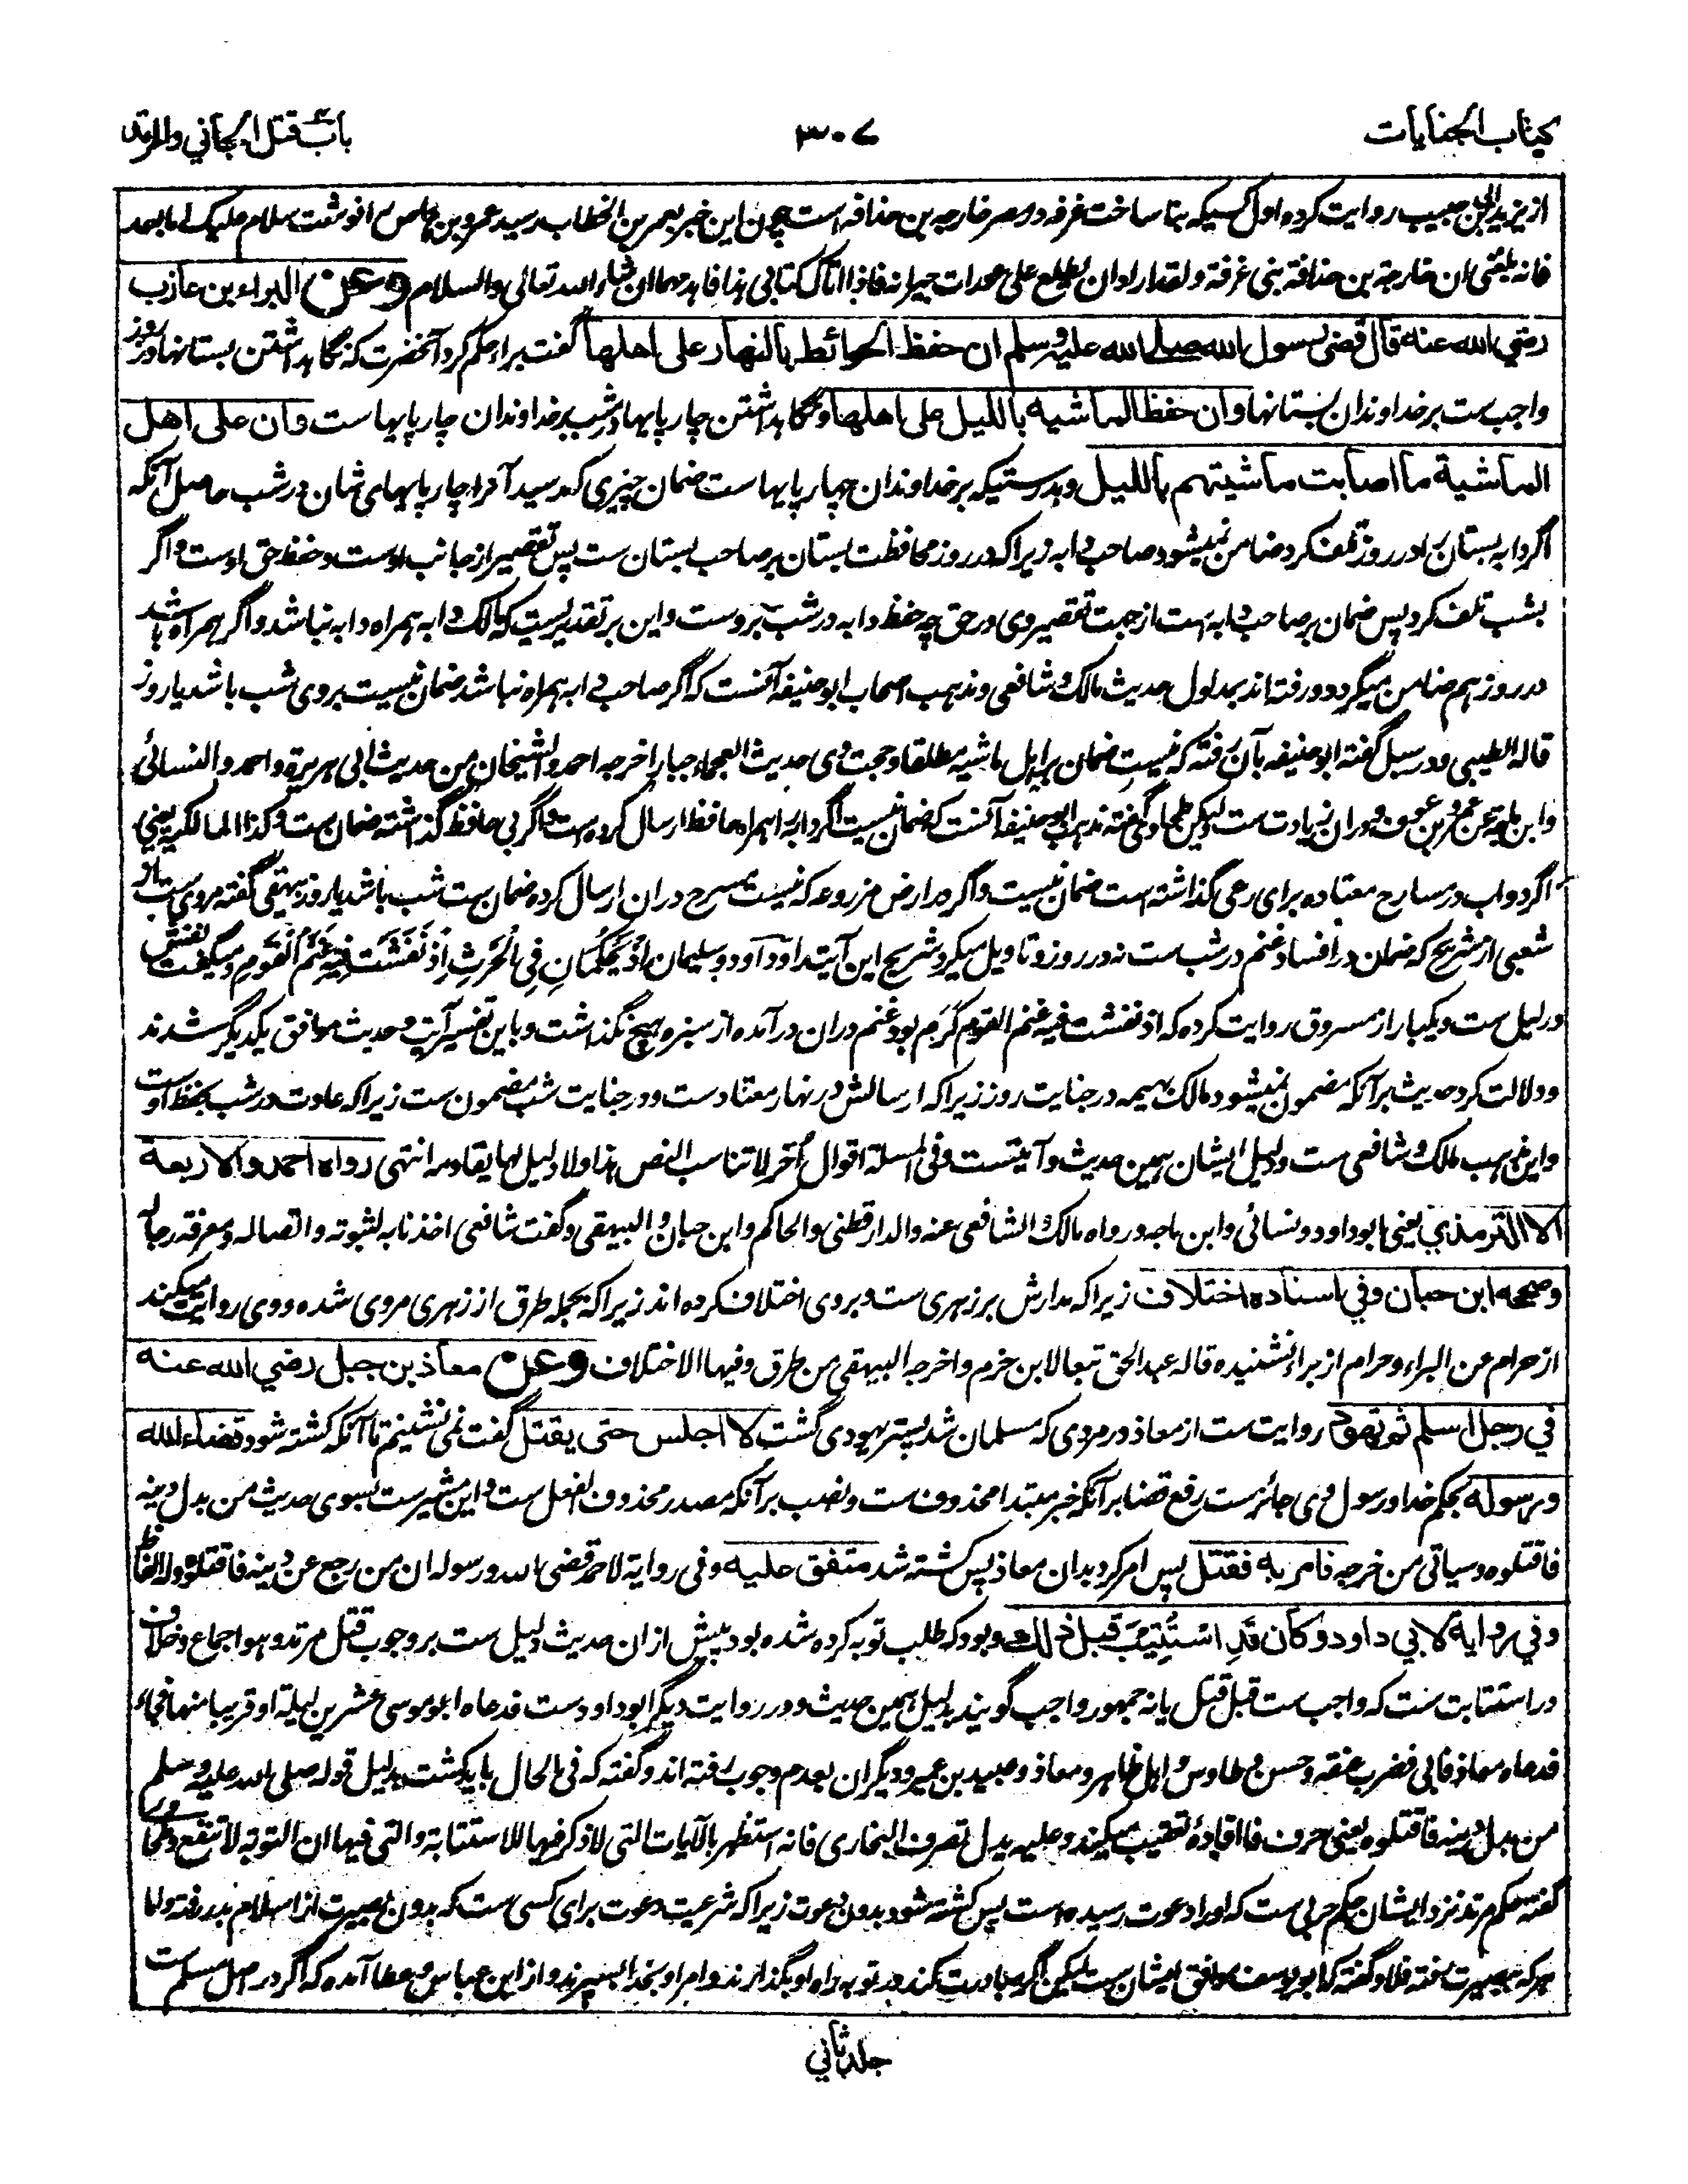 کتاب الجنایات
۳۰۷
باب قتل الجاني والمرتد
از یزید بن ابی حبیب روایت کرده اول کسیکه بنا ساخت غرفه در مصر خارجه بن حذافه است چون این خبر بعمر بن الخطاب رسید عمرو بن عاص را نوشت سلام علیک اما بعد
فانه بلغنی ان خارجة بن حذافة بنی غرفة ولقد اراد ان یطلع علی عورات جیرانه فاذا اتاک کتابی هذا فاهدمها ان شاء الله تعالی والسلام وعن البراء بن عازب
رضي الله عنه قال قضی رسول الله صلی الله علیه وسلم ان حفظ الحوائط بالنهار علی اهلها گفت براء حکم کرد آنحضرت که نگاهداشتن بستانها در روز
واجب ست بر خداوندان بستانها وان حفظ الماشیه باللیل علی اهلها ونگاهداشتن چارپایها در شب بر خداوندان چارپایهاست وان علی اهل
الماشیة ما اصابت ماشیتهم باللیل وبدرستیکه بر خداوندان چهارپایهاست ضمان چیزی که رسید آنرا چارپایهای شان در شب حاصل آنکه
اگر دابه بستان را در روز تلف کرد ضامن نمیشود صاحب دابه زیرا که در روز محافظت بستان بر صاحب بستان ست پس تقصیر از جانب اوست وحفظ حق اوست واگر
بشب تلف کرد پس ضمان بر صاحب دابه است از جهت تقصیر وی در حق چه حفظ دابه در شب بروست واین بر تقدیریست که مالک دابه همراه دابه نباشد واگر همراه باشد
در روز هم ضامن میگردد ورفته اند بمدلول حدیث مالک وشافعی ومذهب اصحاب ابوحنیفه آنست که اگر صاحب دابه همراه نباشد ضمان نیست بروی شب باشد یا روز
قاله الطیبی ودر سبل گفته ابوحنیفه بآن رفته که نیست ضمان بر اهل ماشیه مطلقا وحجت وی حدیث العجماء جبار اخرجه احمد والشیخان من حدیث ابی هریرة واحمد والنسائی
وابن ماجه عن عمرو بن عوف ودران زیادت ست لیکن طحاوی گفته مذهب ابوحنیفه آنست که ضمان نیست اگر دابه را همراه حافظ ارسال کرده است واگر بی حافظ گذاشته ضمان ست وکذا المالکیه یعنی
اگر دواب در مسارح معتاده برای رعی گذاشته است ضمان نیست واگر در ارض مزروعه که نیست مسرح دران ارسال کرده ضمان ست شب باشد یا روز بیهقی گفته مروی ست از
شعبی از شریح که ضمان در افساد غنم در شب ست نه در روز وتاویل میکرد شریح این آیت را وداود وسلیمان اذ یحکمان فی الحرث اذ نفشت فیه غنم القوم ومیگفت نفش
در لیل ست ویکبار از مسروق روایت کرده که اذ نفشت فیه غنم القوم کرم بود غنم دران درآمده از سبزه هیچ نگذاشت وباین تفسیر آیت وحدیث موافق یکدیگر شدند
ودلالت کرد حدیث برآنکه مضمون نمیشود مالک بهیمه در جنایت روز زیرا که ارسالش در نهار معتاد ست ودر جنایت شب مضمون ست زیرا که عادت در شب بحفظ اوست
واین مذهب مالک وشافعی ست ودلیل ایشان همین حدیث وآیتست وفی المسئلة اقوال اُخر لا تناسب النص هذا ولا دلیل لها یقاومه انتهی رواه احمد والاربعة
الا الترمذي یعنی ابوداود ونسائی وابن ماجه ورواه مالک والشافعی عنه والدارقطنی والحاکم وابن حبان والبیهقی وگفت شافعی اخذنا به لثبوته واتصاله ومعرفة رجاله
وصححه ابن حبان وفي اسناده اختلاف زیرا که مدارش بر زهری ست وبروی اختلاف کرده اند زیرا که بجمله طرق از زهری مروی شده ووی روایت میکند
از حرام عن البراء وحرام از براء نشنیده قاله عبد الحق تبعا لابن حزم واخرجه البیهقی من طرق وفیها الاختلاف وعن معاذ بن جبل رضي الله عنه
في رجل اسلم ثم تهود روایت ست از معاذ در مردی که مسلمان شد پستر یهودی گشت لا اجلس حتی یقتل گفت نمی نشینم تا آنکه کشته شود قضاء الله
ورسوله بحکم خدا ورسول وی جائزست رفع قضا برآنکه خبر مبتدا محذوف ست ونصب برآنکه مصدر محذوف الفعل ست واین مشیرست بسوی حدیث من بدل دینه
فاقتلوه وسیاتی من خرجه فامر به فقتل پس امر کرد بدان معاذ پس کشته شد متفق علیه وفی روایة لاحمد قضی الله ورسوله ان من رجع عن دینه فاقتلوه وله الفاظ
وفي روایة لابي داود وکان قَدِ اسْتُتِیبَ قبل ذلك وبود که طلب توبه کرده شده بود پیش ازان حدیث دلیل ست بر وجوب قتل مرتد وهو اجماع وخلاف
در استتابت ست که واجب ست قبل قتل یا نه جمهور واجب گویند بدلیل همین حدیث ودر روایت دیگر ابوداود ست فدعاه ابوموسی عشرین لیلة او قریبا منها فجاء
فدعاه معاذ فابی فضرب عنقه وحسن وطاوس واهل ظاهر ومعاذ وعبید بن عمیر ودیگران بعدم وجوب رفته اند وگفته که فی الحال باید کشت بدلیل قوله صلی الله علیه وسلم
من بدل دینه فاقتلوه یعنی حرف فا افادهٔ تعقیب میکند وعلیه یدل تصرف البخاری فانه استظهر بالآیات التی لا ذکر فیها للاستتابة والتی فیها ان التوبة لا تنفع وطحاوی
گفته حکم مرتد نزد ایشان حکم حربی ست که اورا دعوت رسیده است پس کشته شود بدون دعوت زیرا که شرعیت دعوت برای کسی ست که بدون بصیرت از اسلام بدر رفته واما
هرکه ببصیرت رفته فلا وگفته که ابویوسف موافق ایشان ست لیکن اگر مبادرت کند در توبه راه او بگذارند وامر او بخدا بسپرند واز ابن عباس وعطا آمده که اگر در اصل مسلم ست
جلد ثاني